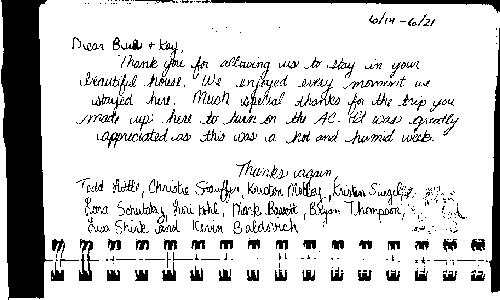 6/14 - 6/21
Dear Bud + Kay,
Thank you for allowing us to stay in your
beautiful house. We enjoyed every moment we
stayed here. Much special thanks for the trip you
made up here to turn on the AC. It was greatly
appreciated as this was a hot and humid week.
Thanks again,
Todd Christie Stauffer, Kristen
Lora Lori Kohl, Mark Bryan Thompson,
Lisa Shirk and Kevin